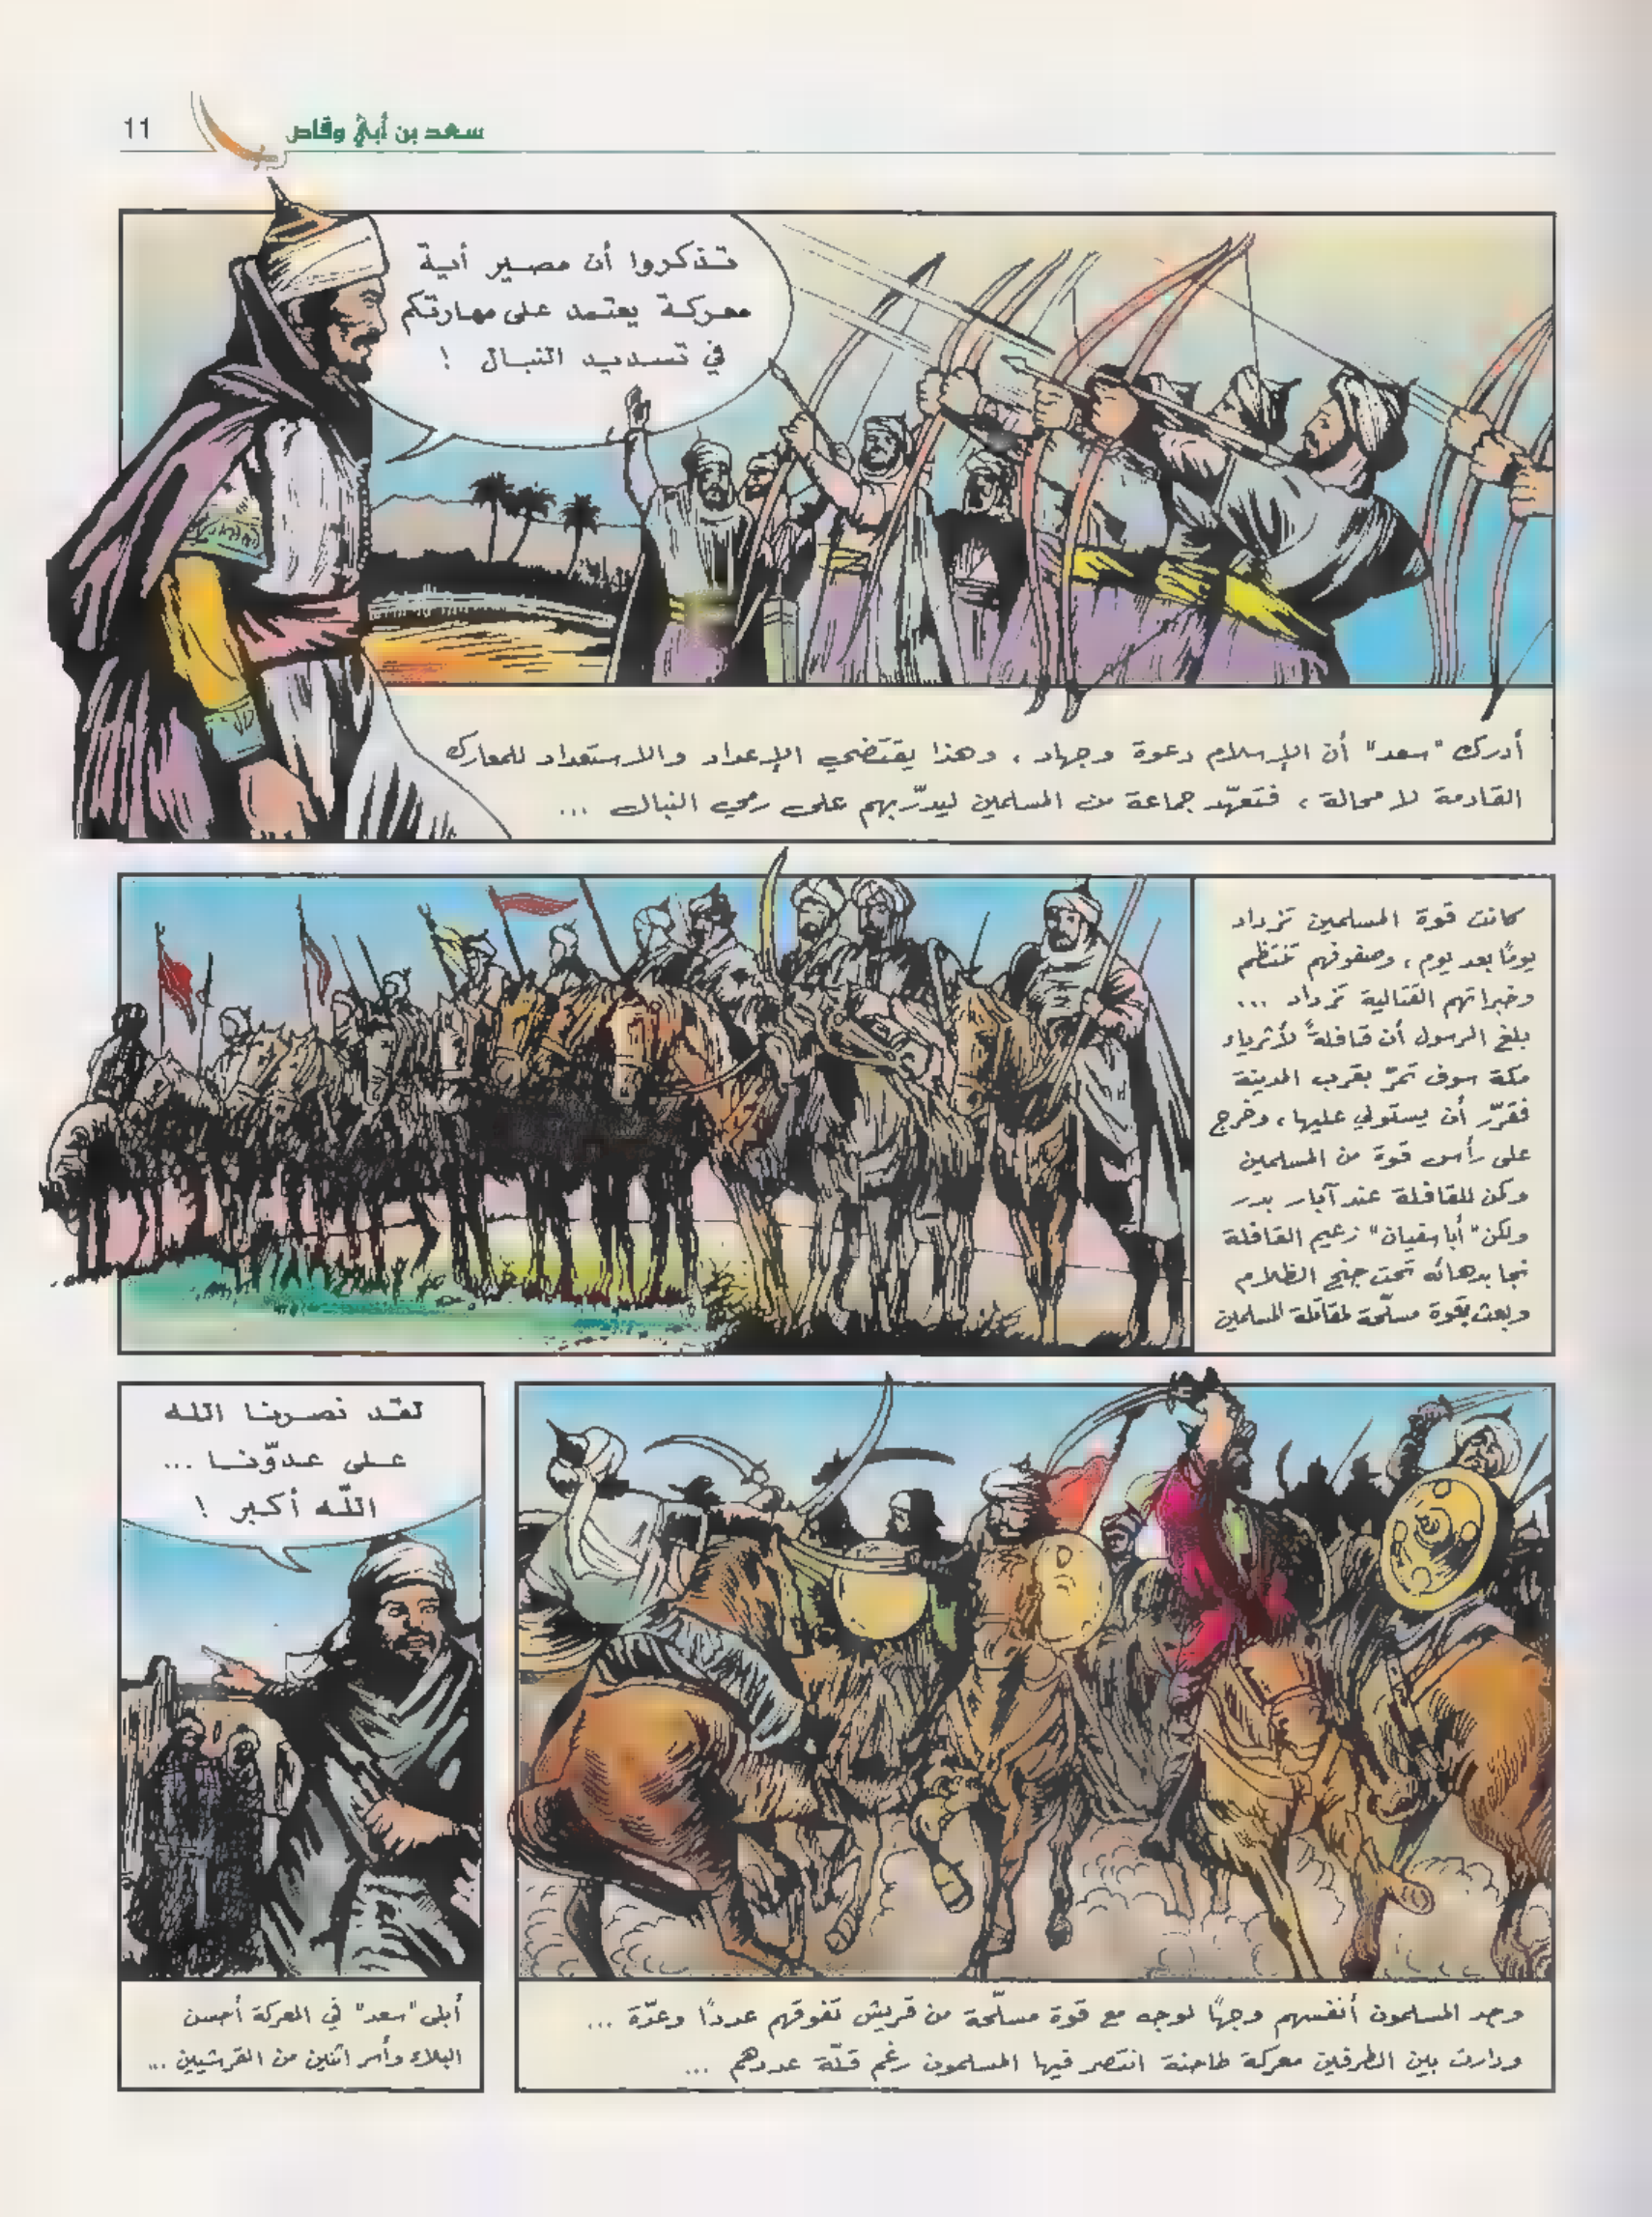 11
سعد بن أبي وقاص
تذكروا أن مصير أية
معركة يعتمد على مهارتكم
في تسديد النبال !
أدرك "سعد" أن الإسلام دعوة وجهاد ، وهذا يقتضي الإعداد والاستعداد للمعارك
القادمة لا محالة ، فتعهّد جماعة من المسلمين ليدرّبهم على رمي النبال ...
كانت قوة المسلمين تزداد
يومًا بعد يوم ، وصفوفهم تنتظم
وخبراتهم القتالية تزداد ...
بلغ الرسول أن قافلةً لأثرياء
مكة سوف تمرّ بقرب المدينة
فقرّر أن يستولي عليها ، وخرج
على رأس قوة من المسلمين
وكمن للقافلة عند آبار بدر
ولكن "أبا سفيان" زعيم القافلة
نجا بدهائه تحت جنح الظلام
وبعث بقوة مسلّحة لمقاتلة المسلمين
وجد المسلمون أنفسهم وجهًا لوجه مع قوة مسلّحة من قريش تفوقهم عددًا وعدّة ...
ودارت بين الطرفين معركة طاحنة انتصر فيها المسلمون رغم قلّة عددهم ...
لقد نصرنا الله
على عدوّنا ...
اللّه أكبر !
أبلى "سعد" في المعركة أحسن
البلاء وأسر اثنين من القرشيين ...